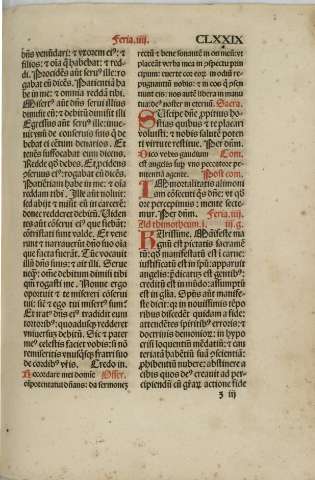 Feria.iiij. CLXXIX
dn̄s venūdari: ⁊ vxorem ei⁹: ⁊
filios: ⁊ oīa q̄ habebat: ⁊ red-
di. Procidēs aūt seru⁹ ille: ro-
gabat eū dicēs. Patientiā ha
be in me: ⁊ omnia reddā tibi.
Misert⁹ aūt dn̄s serui illius
dimisit eū: ⁊ debitū dimisit ei
Egressus aūt seru⁹ ille: inue-
nit vnū de conseruis suis q̄ de
bebat ei cētum denarios. Et
tenēs suffocabat eum dicens.
Redde qd̄ debes. Et p̄cidens
ꝯseruus ei⁹: rogabat eū dicēs.
Patiētiam habe in me: ⁊ oīa
reddam tibi. Ille aūt noluit:
sed abijt ⁊ misit eū ī carcerē:
donec redderet debitū. Vidēn
tes aūt cōserui ei⁹ que fiebāt:
cōtristati sunt valde. Et vene
runt ⁊ narrauerūt dn̄o suo oīa
que facta fuerāt. Tūc vocauit
illū dn̄s suus: ⁊ ait illi. Serue
neq̄: om̄e debitum dimisi tibi
qm̄ rogasti me. Nonne ergo
oportuit ⁊ te misereri cōserui
tui: sic̄ ⁊ ego tui misert⁹ sum?
Et irat⁹ dn̄s ei⁹ tradidit eum
tortorib⁹: quoadusq̄ redderet
vniuersū debitū. Sic ⁊ pater
me⁹ celestis faciet vobis: si nō
remiseritis vnusq̄sq̄ fratri suo
de cordib⁹ vr̄is. Credo in.
Recordare mei domine Offer.
oīpotentatui dn̄ans: da sermonez
rectū ⁊ bene sonantē in os meū: vt
placeāt verba mea in ꝯspectu prin
cipum: cuerte cor eoꝝ in odiū re-
pugnantiū nobis: ⁊ in eos q̄ ꝯsen
tiunt eis: nos autē libera in manu
tua: de⁹ noster in eternū. Sacra.
Suscipe dn̄e ꝓpitius ho-
stias quibus ⁊ te placari
voluisti: ⁊ nobis salutē poten
ti virtute restitue. Per dn̄m.
Dico vobis gaudium Com.
est angelis sup vno peccatore pe-
nitentiā agente. Post com.
Immortalitatis alimoni
am cōsecuti qs̄ dn̄e: vt qd̄
ore percepimus: mente secte-
mur. Per dn̄m. Feria.iiij.
Ad thimotheum.i. iij.g.
Karissime. Māifeste ma
gnū est pietatis sacramē
tū: qd̄ manifestatū est ī carne:
iustificatū est in spū: apparuit
angelis: p̄dicatū est gentib⁹:
creditū est in mūdo: assumptū
est in glīa. Spūs aūt manife-
ste dicit: qꝛ in nouissimis tēpo
ribus discedēt quidam a fide:
attendētes spiritib⁹ erroris: ⁊
doctrinis demonioꝝ: in hypo
crisi loquentiū mēdatiū: ⁊ cau
teriatā habētiū suā ꝯscientiā:
ꝓhibentiū nubere: abstinere a
cibis quos de⁹ creauit ad per-
cipiendū cū gr̄aꝝ actione fide
z iij